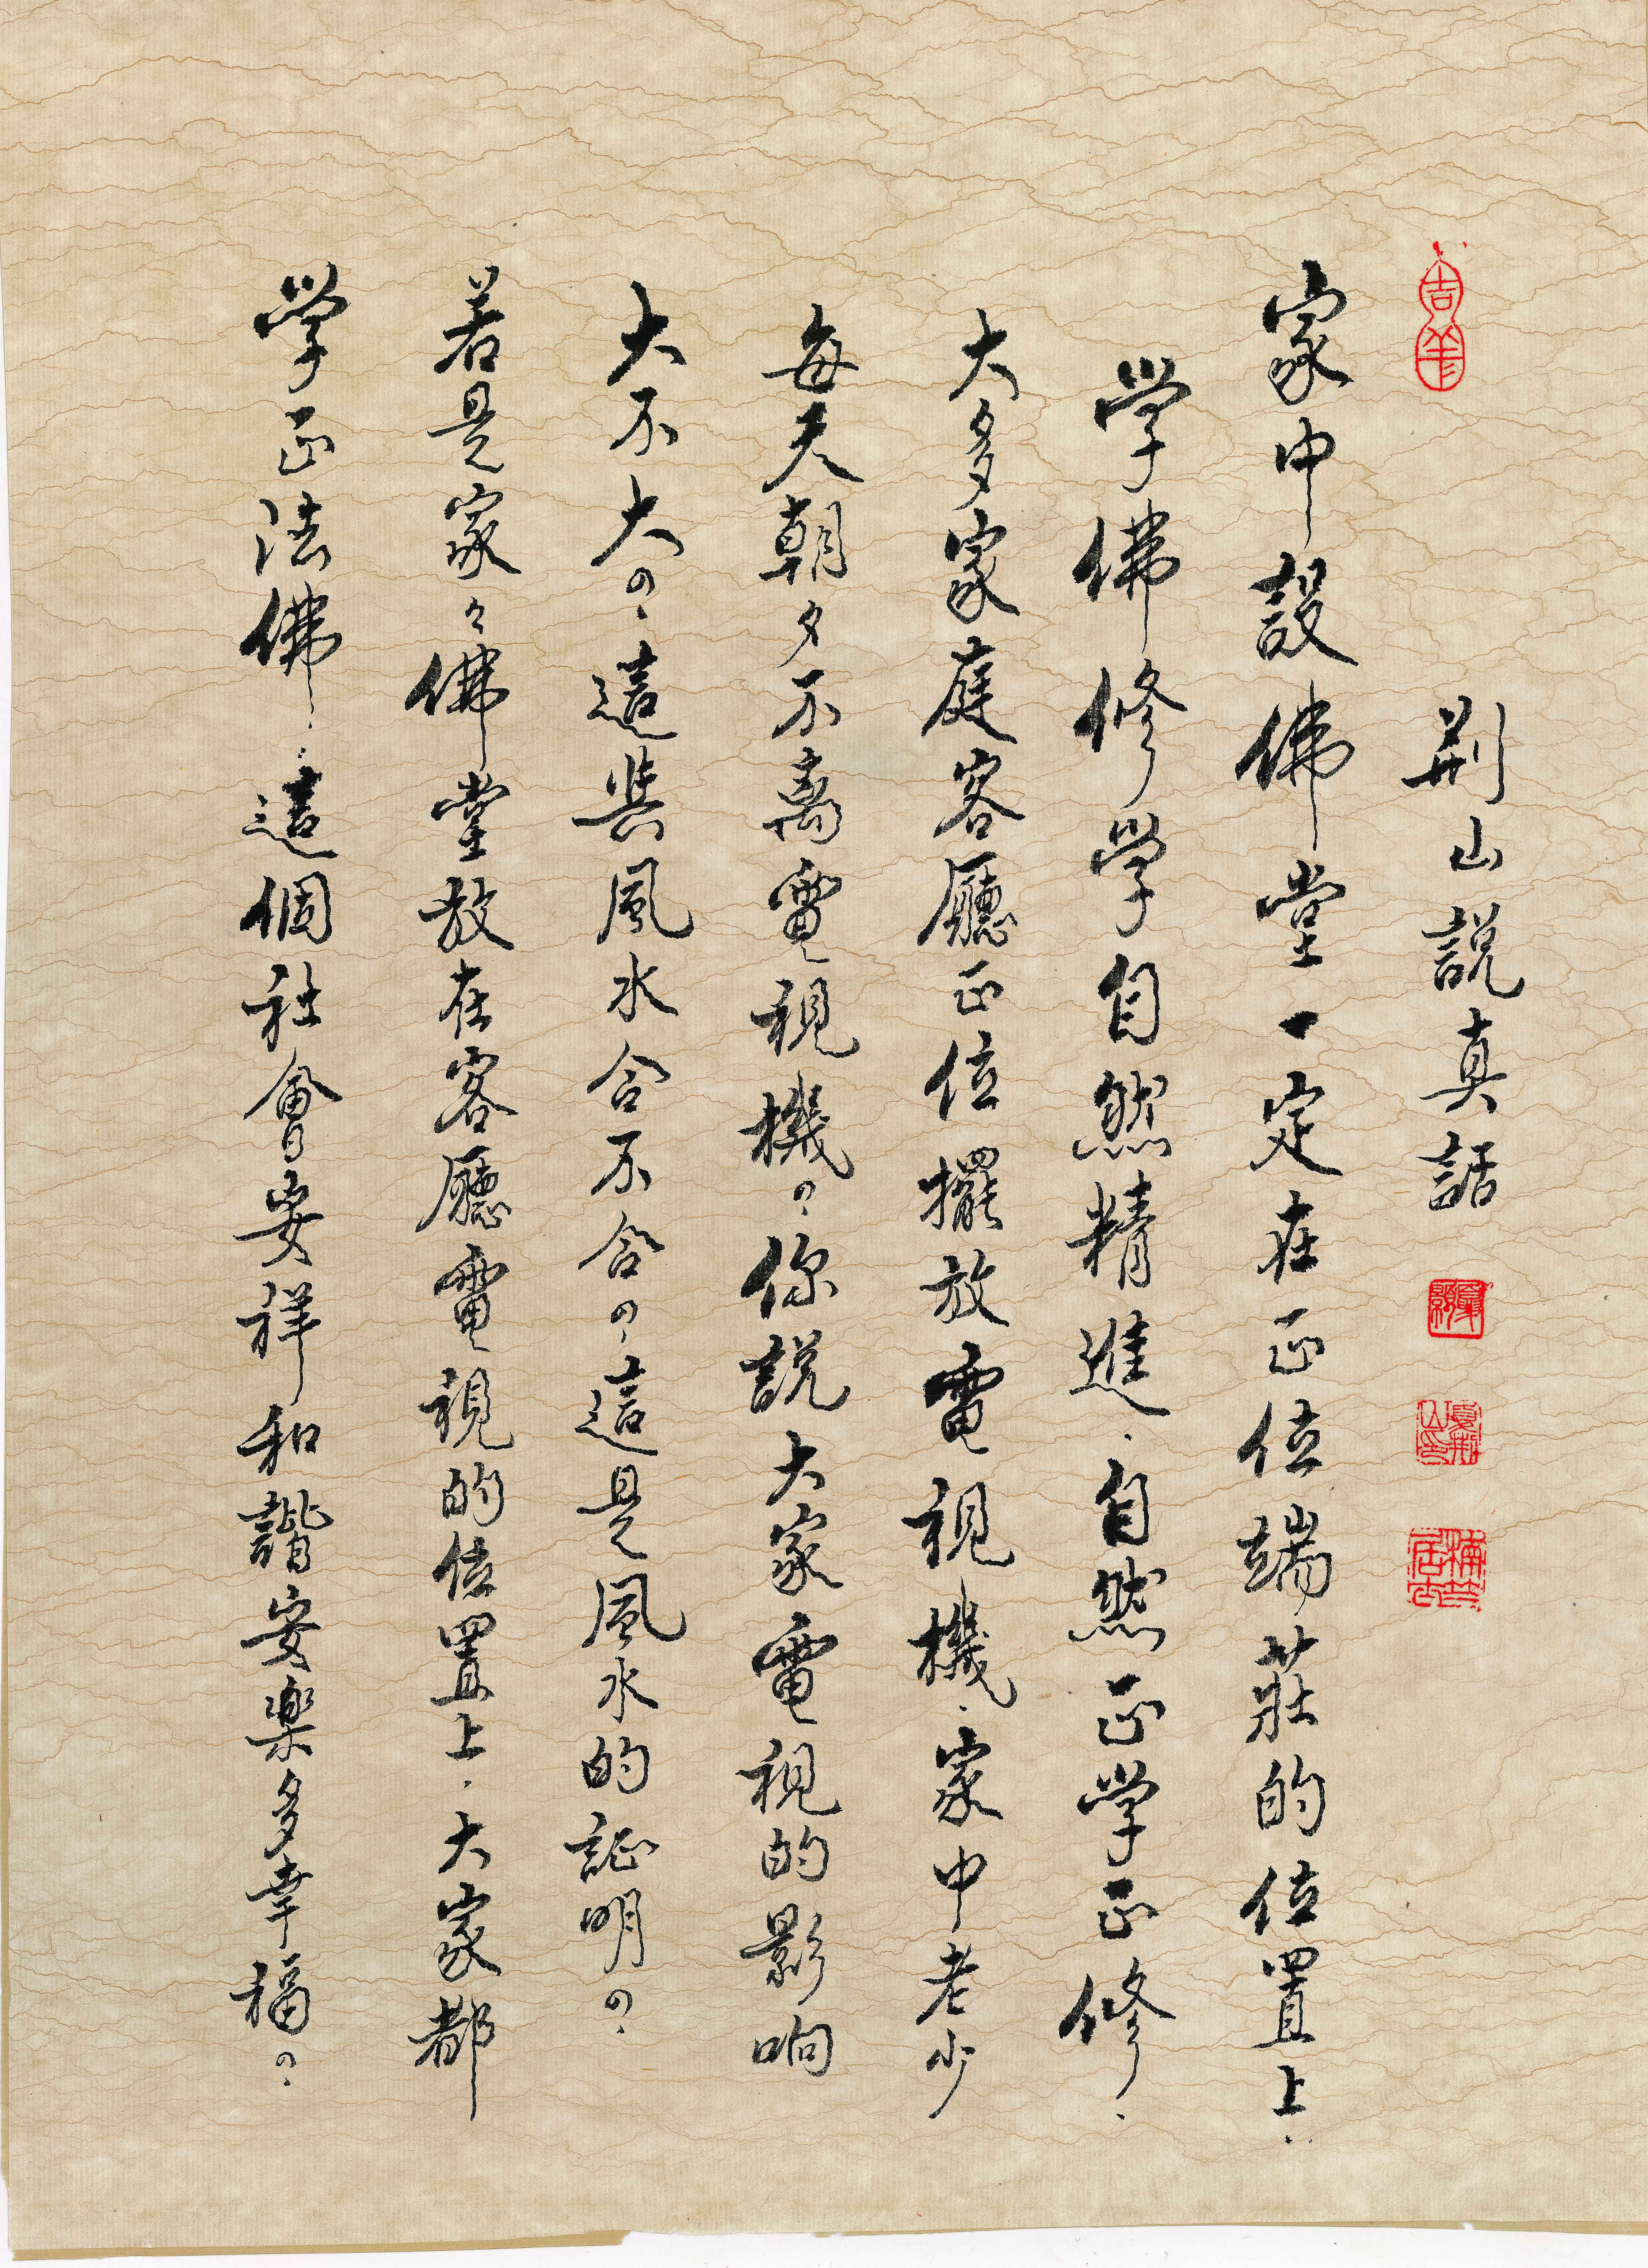 吉祥
荆山説真話
家中設佛堂一定在正位端莊的位置上.
学佛修学自然精進.自然正学正修.
大多家庭客廳正位擺放電視機.家中老少
每天朝夕不离電視機の.你説大家電視的影响
大不大の.這与風水合不合の.這是風水的証明の.
若是家々佛堂放在客廳電視的位置上.大家都
学正法佛.這個社會安祥和諧安楽多幸福の.
夏荆山印